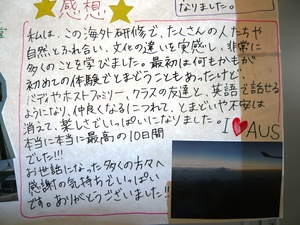 なりました。
感想
私は、この海外研修で、たくさんの人たちや
自然とふれ合い、文化の違いを実感し、非常に
多くのことを学びました。最初は何もかもが
初めての体験でとまどうこともあったけど、
バディやホストファミリー、クラスの友達と、英語で話せる
ようになり、仲良くなるにつれて、とまどいや不安は
消えて、楽しさでいっぱいになりました。
I AUS
本当に本当に最高の10日間
でした!!!
お世話になった多くの方々へ
感謝の気持ちでいっぱい
です。ありがとうございました!!